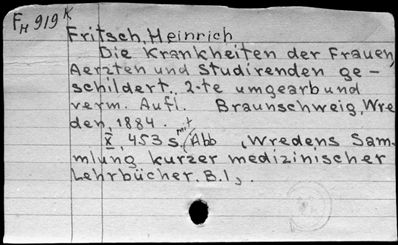 FH 919 K
Fritsch, Heinrich
Die Krankheiten der Frauen,
Aerzten und Studirenden ge-
schildert. 2-te umgearb und
verm. Aufl. Braunschweig, Wre
den, 1884.
X, 453 S. mit Abb (Wredens Sam-
mlung kurzer medizinischer
Lehrbücher. B.1).